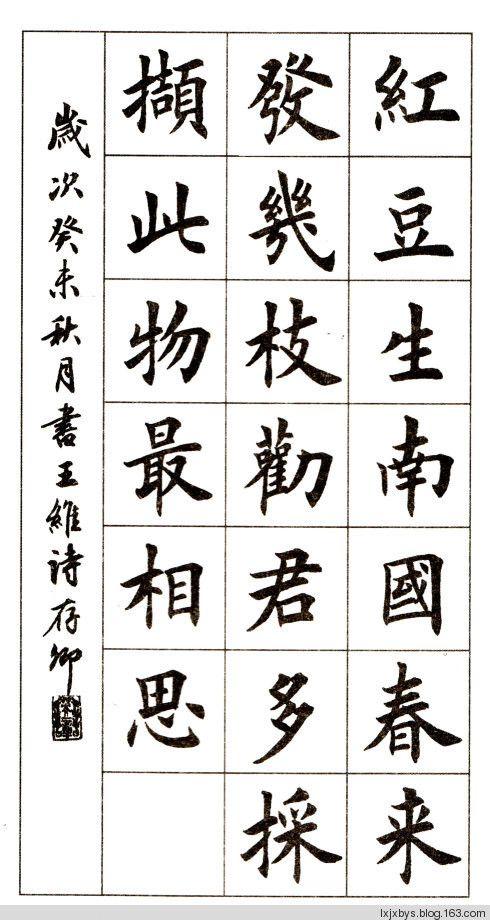 紅豆生南國春来
發幾枝勸君多採
擷此物最相思
歲次癸未秋月書王維詩存卿
lxjxbys.blog.163.com